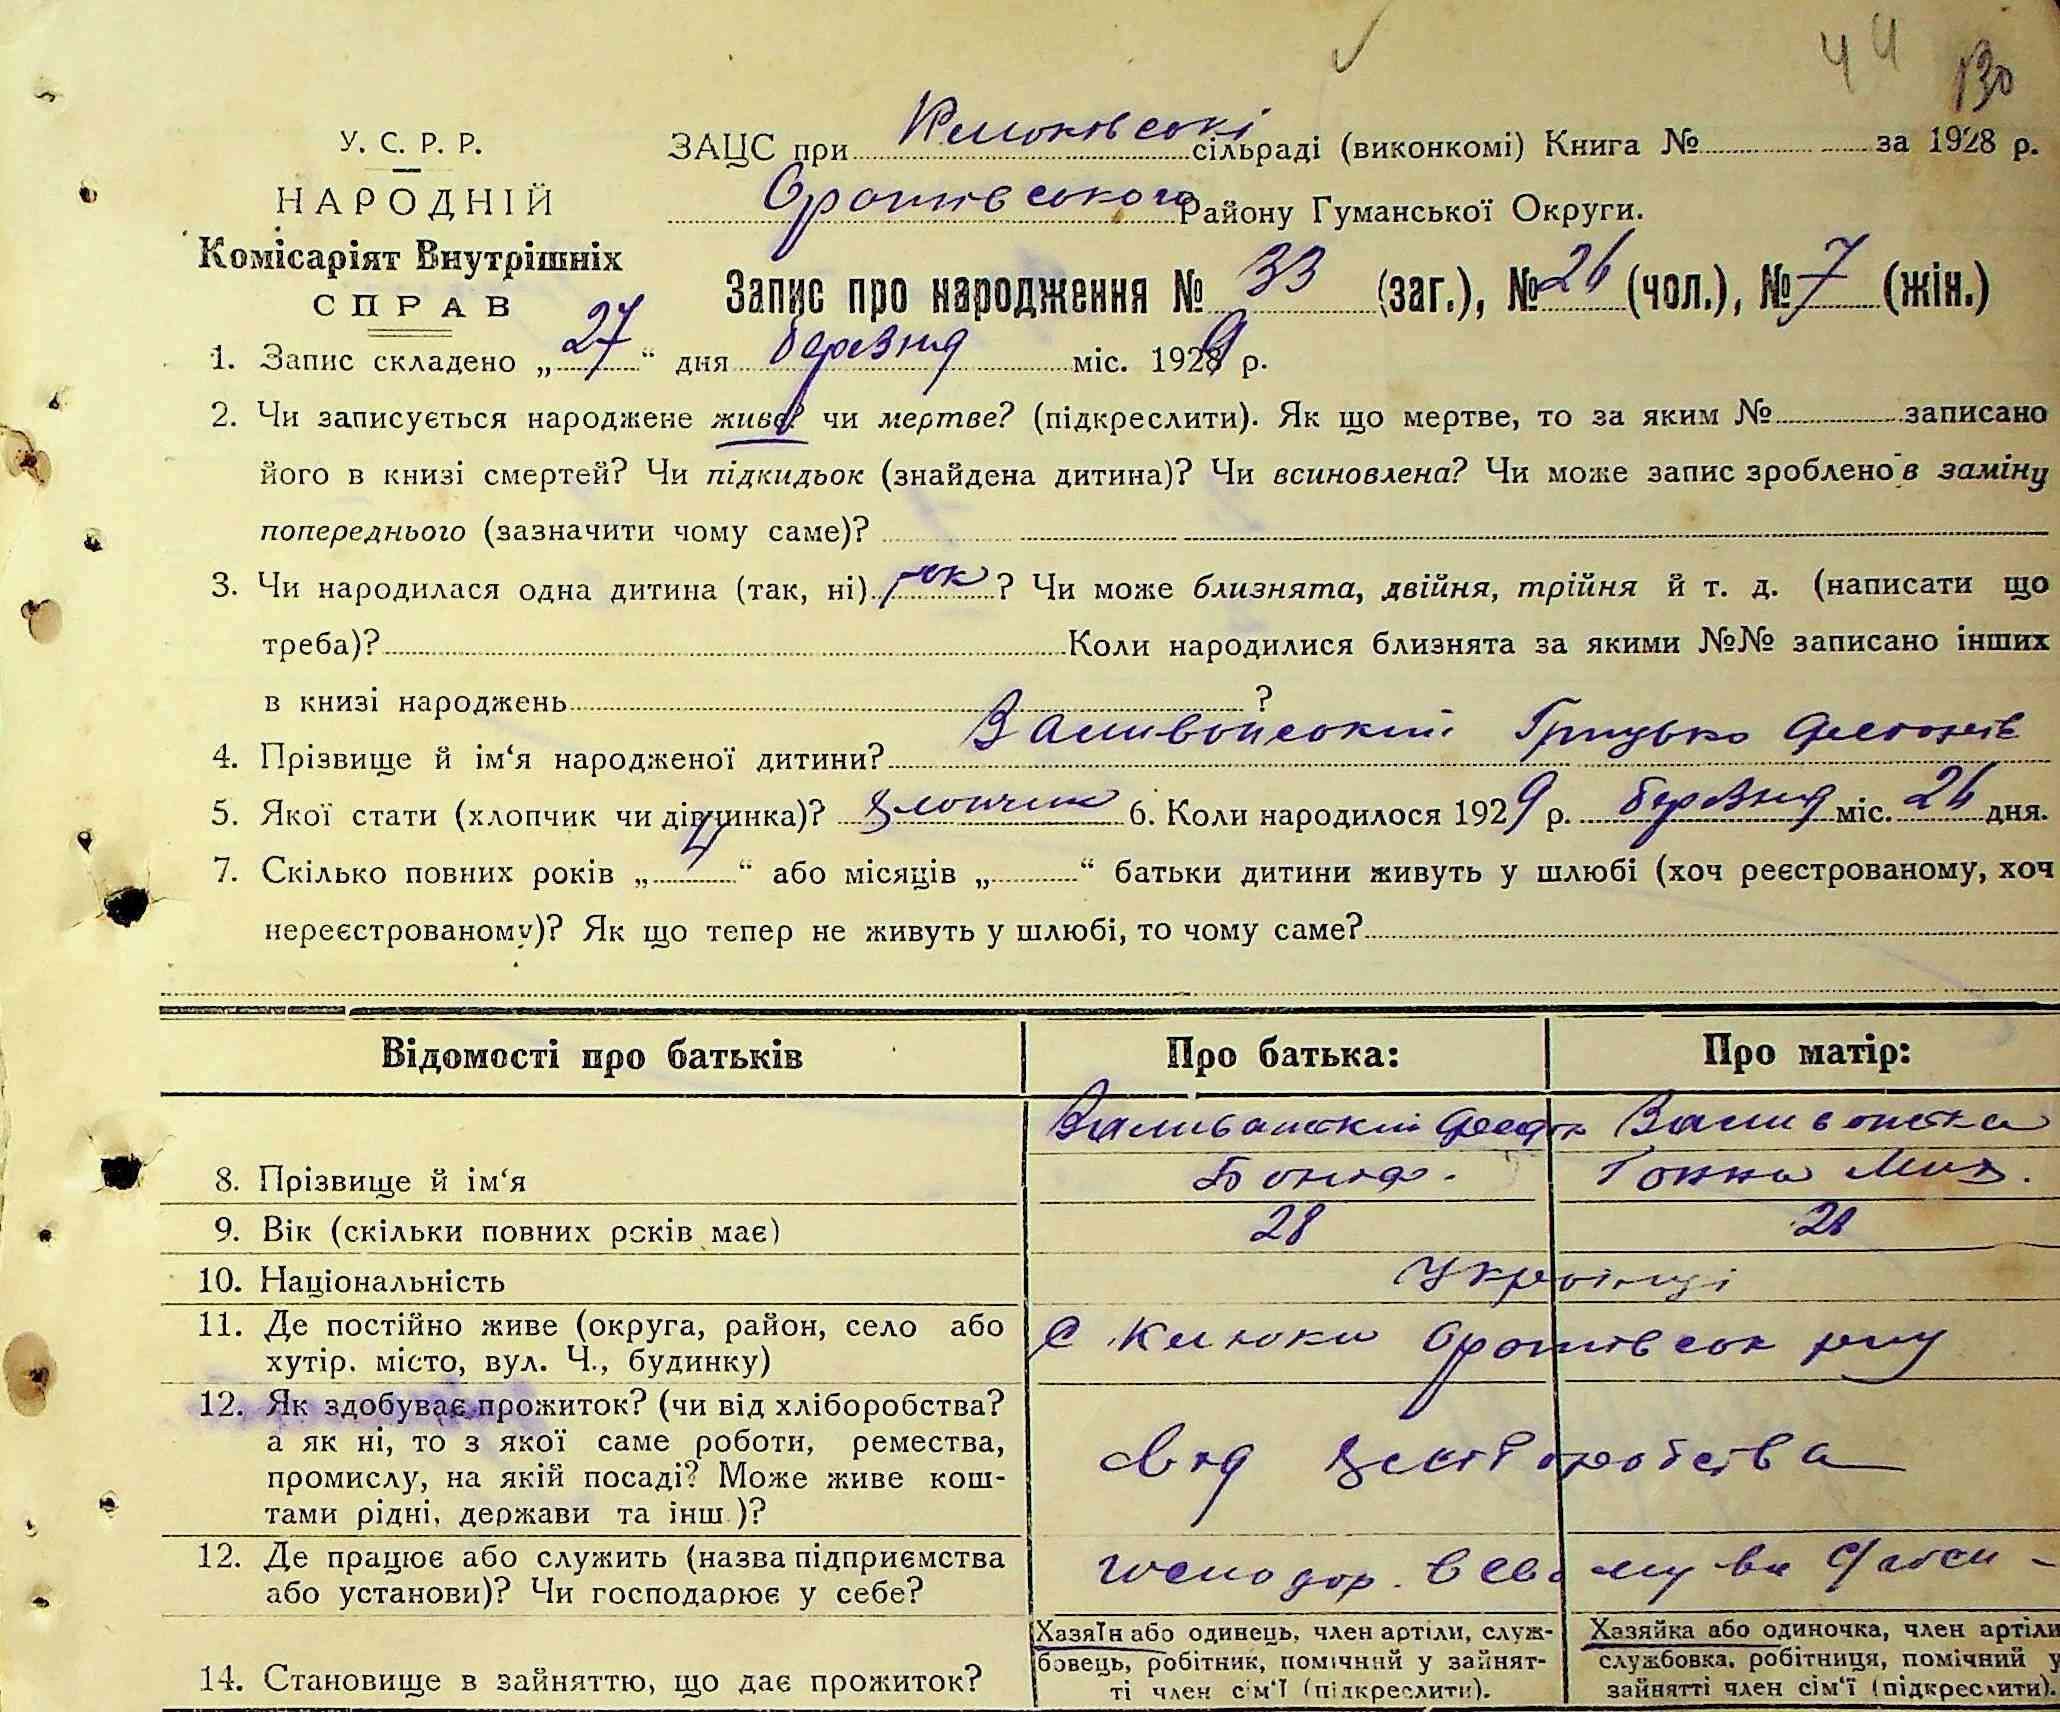 44 130
У. С. Р. Р.
НАРОДНІЙ
Комісаріят Внутрішніх
СПРАВ
ЗАЦС при Клюківські сільраді (виконкомі) Книга № за 1928 р.
Оратівського Району Гуманської Округи.
Запис про народження № 33 (заг.), № 26 (чол.), № 7 (жін.)
1. Запис складено „27“ дня березня міс. 1929 р.
2. Чи записується народжене живе? чи мертве? (підкреслити). Як що мертве, то за яким № записано
його в книзі смертей? Чи підкидьок (знайдена дитина)? Чи всиновлена? Чи може запис зроблено в заміну
попереднього (зазначити чому саме)?
3. Чи народилася одна дитина (так, ні) так ? Чи може близнята, двійня, трійня й т. д. (написати що
треба)? Коли народилися близнята за якими №№ записано інших
в книзі народжень ?
4. Прізвище й ім‘я народженої дитини?Валивонський Грицько
5. Якої стати (хлопчик чи дівчинка)? хлопчик 6. Коли народилося 1929 р. березня міс. 26 дня.
7. Скілько повних років „4“ або місяців „ “ батьки дитини живуть у шлюбі (хоч реєстрованому, хоч
нереєстрованому)? Як що тепер не живуть у шлюбі, то чому саме?
Відомості про батьків
Про батька:
Про матір:
8. Прізвище й ім‘я
Боніф.
Ганна Мих.
9. Вік (скільки повних років має)
28
10. Національність
Українці
11. Де постійно живе (округа, район, село або
хутір. місто, вул. Ч., будинку)
с Клюки Оратівськ р-ну
12. Як здобуває прожиток? (чи від хліборобства?
а як ні, то з якої саме роботи, ремества,
промислу, на якій посаді? Може живе кош-
тами рідні, держави та інш.)?
Від хліборобства
12. Де працює або служить (назва підприємства
або установи)? Чи господарює у себе?
господар. в сво му
14. Становище в зайняттю, що дає прожиток?
Хазяїн або одинець, член артіли, служ-
бовець, робітник, помічний у зайнят-
ті член сім‘ї (підкреслити).
Хазяйка або одиночка, член артіли
службовка, робітниця, помічний у
зайнятті член сім‘ї (підкреслити).